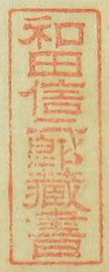 和田信二郎藏書